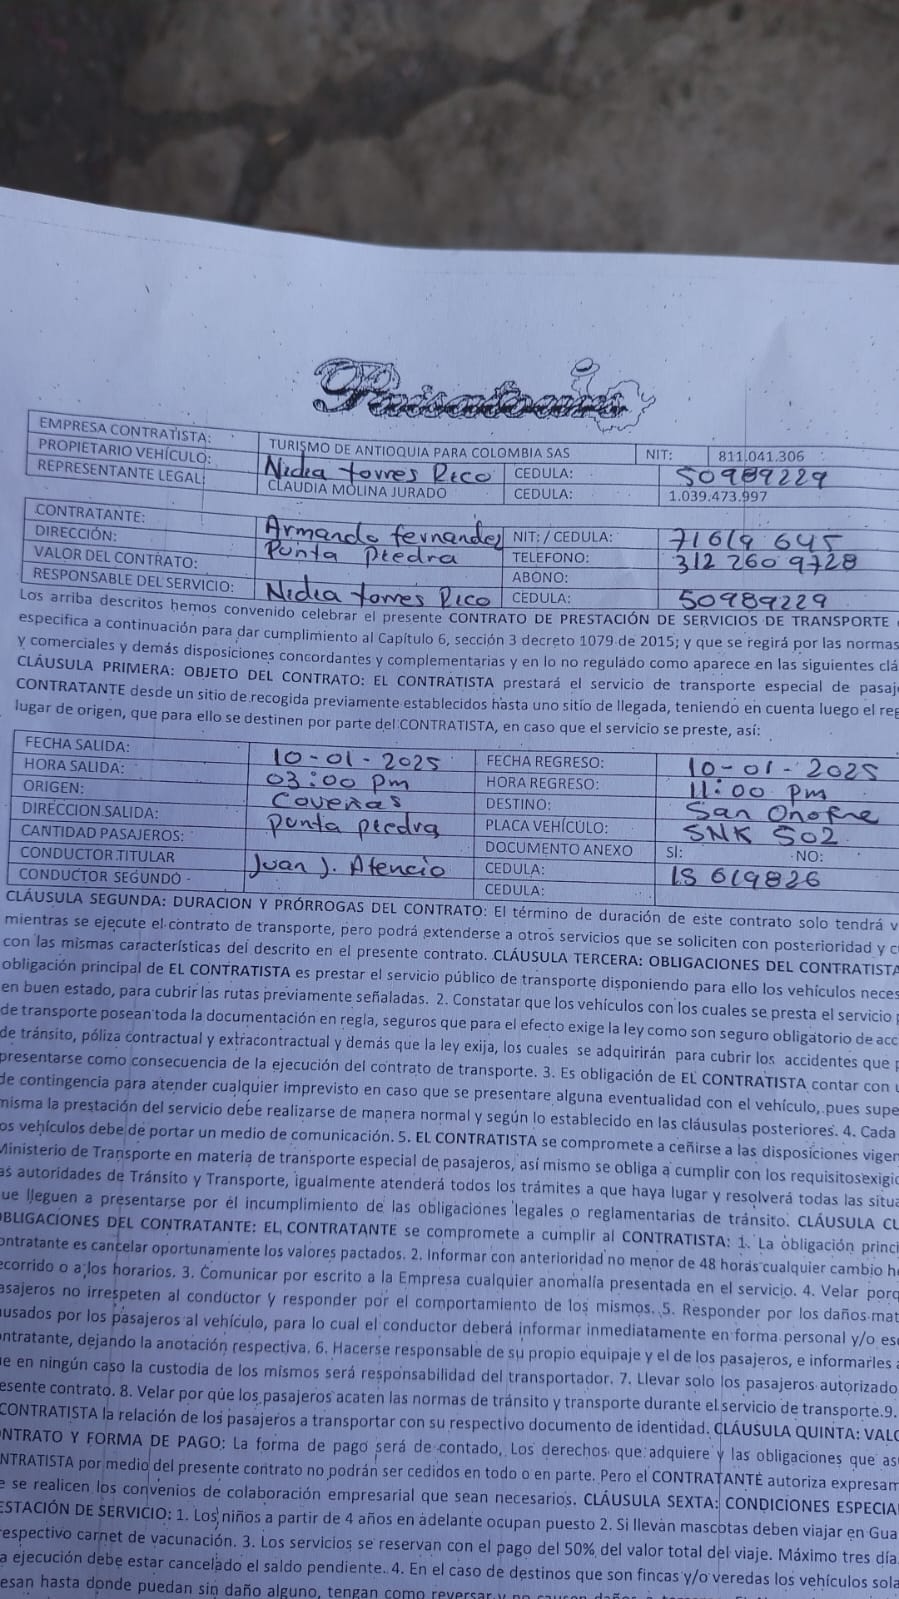 Paisatours
EMPRESA CONTRATISTA: TURISMO DE ANTIOQUIA PARA COLOMBIA SAS NIT: 811.041.306
PROPIETARIO VEHÍCULO: Nidia torres Rico CEDULA: 50989229
REPRESENTANTE LEGAL: CLAUDIA MOLINA JURADO CEDULA: 1.039.473.997
CONTRATANTE: Armando fernandez NIT: / CEDULA: 71619 645
DIRECCIÓN: Punta Piedra TELEFONO: 312 260 9728
VALOR DEL CONTRATO: ABONO:
RESPONSABLE DEL SERVICIO: Nidia torres Rico CEDULA: 50989229
Los arriba descritos hemos convenido celebrar el presente CONTRATO DE PRESTACIÓN DE SERVICIOS DE TRANSPORTE
especifica a continuación para dar cumplimiento al Capítulo 6, sección 3 decreto 1079 de 2015; y que se regirá por las normas
y comerciales y demás disposiciones concordantes y complementarias y en lo no regulado como aparece en las siguientes clá
CLÁUSULA PRIMERA: OBJETO DEL CONTRATO: EL CONTRATISTA prestará el servicio de transporte especial de pasaj
CONTRATANTE desde un sitio de recogida previamente establecidos hasta uno sitio de llegada, teniendo en cuenta luego el reg
lugar de origen, que para ello se destinen por parte del CONTRATISTA, en caso que el servicio se preste, así:
FECHA SALIDA: 10-01-2025 FECHA REGRESO: 10-01-2025
HORA SALIDA: 03:00 pm HORA REGRESO: 11:00 pm
ORIGEN: Coveñas DESTINO: San Onofre
DIRECCION SALIDA: punta piedra PLACA VEHÍCULO: SNK 502
CANTIDAD PASAJEROS: DOCUMENTO ANEXO SI: NO:
CONDUCTOR TITULAR Juan J. Atencio CEDULA: 15 619826
CONDUCTOR SEGUNDO - CEDULA:
CLÁUSULA SEGUNDA: DURACION Y PRÓRROGAS DEL CONTRATO: El término de duración de este contrato solo tendrá v
mientras se ejecute el contrato de transporte, pero podrá extenderse a otros servicios que se soliciten con posterioridad y c
con las mismas características del descrito en el presente contrato. CLÁUSULA TERCERA: OBLIGACIONES DEL CONTRATISTA
obligación principal de EL CONTRATISTA es prestar el servicio público de transporte disponiendo para ello los vehículos neces
en buen estado, para cubrir las rutas previamente señaladas. 2. Constatar que los vehículos con los cuales se presta el servicio
de transporte posean toda la documentación en regla, seguros que para el efecto exige la ley como son seguro obligatorio de acc
de tránsito, póliza contractual y extracontractual y demás que la ley exija, los cuales se adquirirán para cubrir los accidentes que
presentarse como consecuencia de la ejecución del contrato de transporte. 3. Es obligación de EL CONTRATISTA contar con
de contingencia para atender cualquier imprevisto en caso que se presentare alguna eventualidad con el vehículo, pues supe
misma la prestación del servicio debe realizarse de manera normal y según lo establecido en las cláusulas posteriores. 4. Cada
os vehículos debe de portar un medio de comunicación. 5. EL CONTRATISTA se compromete a ceñirse a las disposiciones vigen
Ministerio de Transporte en materia de transporte especial de pasajeros, así mismo se obliga a cumplir con los requisitosexigid
as autoridades de Tránsito y Transporte, igualmente atenderá todos los trámites a que haya lugar y resolverá todas las situa
ue lleguen a presentarse por el incumplimiento de las obligaciones legales o reglamentarias de tránsito. CLÁUSULA CU
OBLIGACIONES DEL CONTRATANTE: EL CONTRATANTE se compromete a cumplir al CONTRATISTA: 1. La obligación princi
ontratante es cancelar oportunamente los valores pactados. 2. Informar con anterioridad no menor de 48 horas cualquier cambio
ecorrido o a los horarios. 3. Comunicar por escrito a la Empresa cualquier anomalía presentada en el servicio. 4. Velar porq
asajeros no irrespeten al conductor y responder por el comportamiento de los mismos. 5. Responder por los daños mat
ausados por los pasajeros al vehículo, para lo cual el conductor deberá informar inmediatamente en forma personal y/o es
ontratante, dejando la anotación respectiva. 6. Hacerse responsable de su propio equipaje y el de los pasajeros, e informarles
ue en ningún caso la custodia de los mismos será responsabilidad del transportador. 7. Llevar solo los pasajeros autorizado
esente contrato. 8. Velar por que los pasajeros acaten las normas de tránsito y transporte durante el servicio de transporte.9.
CONTRATISTA la relación de los pasajeros a transportar con su respectivo documento de identidad. CLÁUSULA QUINTA: VALO
ONTRATO Y FORMA DE PAGO: La forma de pago será de contado, Los derechos que adquiere y las obligaciones que as
NTRATISTA por medio del presente contrato no podrán ser cedidos en todo o en parte. Pero el CONTRATANTE autoriza expresam
e se realicen los convenios de colaboración empresarial que sean necesarios. CLÁUSULA SEXTA: CONDICIONES ESPECIA
ESTACIÓN DE SERVICIO: 1. Los niños a partir de 4 años en adelante ocupan puesto 2. Si llevan mascotas deben viajar en Gua
respectivo carnet de vacunación. 3. Los servicios se reservan con el pago del 50% del valor total del viaje. Máximo tres día
a ejecución debe estar cancelado el saldo pendiente. 4. En el caso de destinos que son fincas y/o veredas los vehículos sola
esan hasta donde puedan sin daño alguno, tengan como reversar y no causen